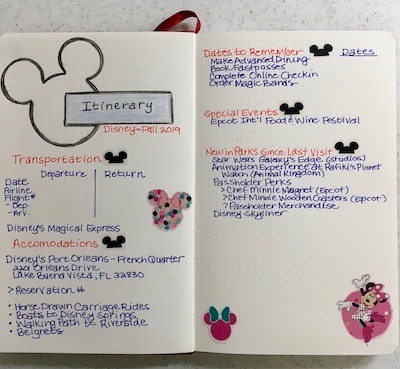 Itinerary
Disney-Fall 2019
Transportation
Departure Return
Date
Airline
Flight#
- Dep.
- Arv.
Disney's Magical Express
Accomodations
Disney's Port Orleans - French Quarter
Orleans Drive
Lake Buena Vista, FL 32830
> Reservation #
• Horse Drawn Carriage Rides
• Boats to Disney Springs
• Walking Path to Riverside
• Beignets
Dates to Remember Dates
Make Advanced Dining
Book Fastpasses
Complete Online Checkin
Order Magic Bands
Special Events
Epcot Int'l Food & Wine Festival
New in Parks Since Last Visit
Star Wars Galaxy's Edge (Studios)
Animation Experience at Rafiki's Planet
Watch (Animal Kingdom)
Passholder Perks
> Chef Minnie Magnet (Epcot)
> Chef Minnie Wooden Coasters (Epcot)
> Passholder Merchandise
Disney Skyliner